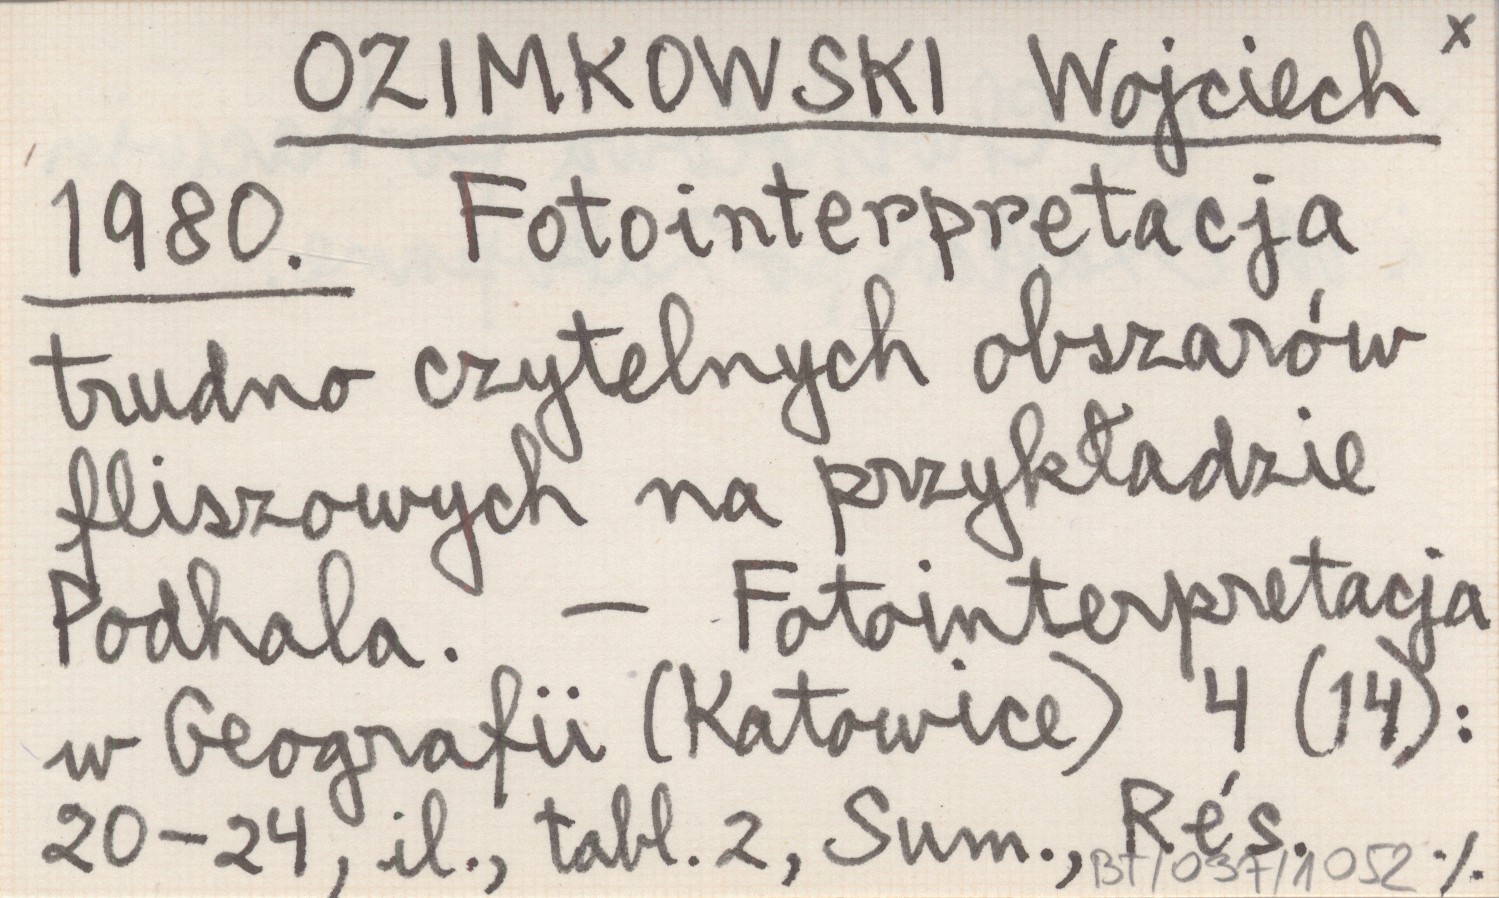 OZIMKOWSKI Wojciech x
1980. Fotointerpretacja
trudno czytelnych obszarów
fliszowych na przykładzie
Podhala. — Fotointerpretacja
w Geografii (Katowice) 4 (14):
20-24, il., tabl. 2, Sum., Rés. ./.
BT/037/1052